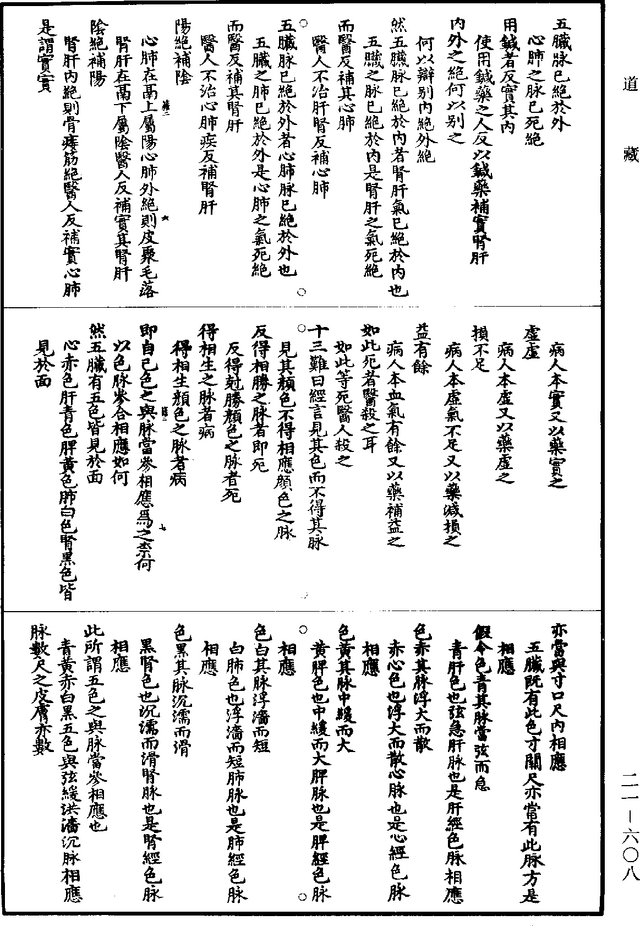 道藏
五臟脉已絕於外
心肺之脉已死絕
用鍼者反實其內
使用鍼藥之人反以鍼藥補實腎肝
內外之絕何以別之
何以辯別內絕外絕
然五臟脉已絕於內者腎肝氣已絕於內也
五臟之脉已絕於內是腎肝之氣死絕
而醫反補其心肺
醫人不治肝腎反補心肺
五臟脉已絕於外者心肺脉已絕於外也
五臟之肺已絕於外是心肺之氣死絕
而醫反補其腎肝
醫人不治心肺疾反補腎肝
陽絕補陰
心肺在鬲上屬陽心肺外絕則皮聚毛落
腎肝在鬲下屬陰醫人反補實其腎肝
陰絕補陽
腎肝內絕則骨痿筋絕醫人反補實心肺
是謂實實
病人本實又以藥實之
虛虛
病人本虛又以藥虛之
損不足
病人本虛氣不足又以藥減損之
益有餘
病人本血氣有餘又以藥補益之
如此死者醫殺之耳
如此等死醫人殺之
十三難曰經言見其色而不得其脉
見其顏色不得相應顏色之脉
反得相勝之脉者即死
反得尅勝顏色之脉者死
得相生之脉者病
得相生顏色之脉者病
即自己色之與脉當參相應爲之柰何
以色脉參合相應如何
然五臟有五色皆見於面
心赤色肝青色脾黃色肺白色腎黑色皆
見於面
亦當與寸口尺內相應
五臟既有此色寸關尺亦當有此脉方是
相應
假令色青其脉當弦而急
青肝色也弦急肝脉也是肝經色脉相應
色赤其脉浮大而散
赤心色也浮大而散心脉也是心經色脉
相應
色黃其脉中緩而大
黃脾色也中緩而大脾脉也是脾經色脉
相應
色白其脉浮濇而短
白肺色也浮濇而短肺脉也是肺經色脉
相應
色黑其脉沉濡而滑
黑腎色也沉濡而滑腎脉也是腎經色脉
相應
此所謂五色之與脉當參相應也
青黃赤白黑五色與弦緩洪濇沉脉相應
脉數尺之皮膚亦數
二一－六〇八